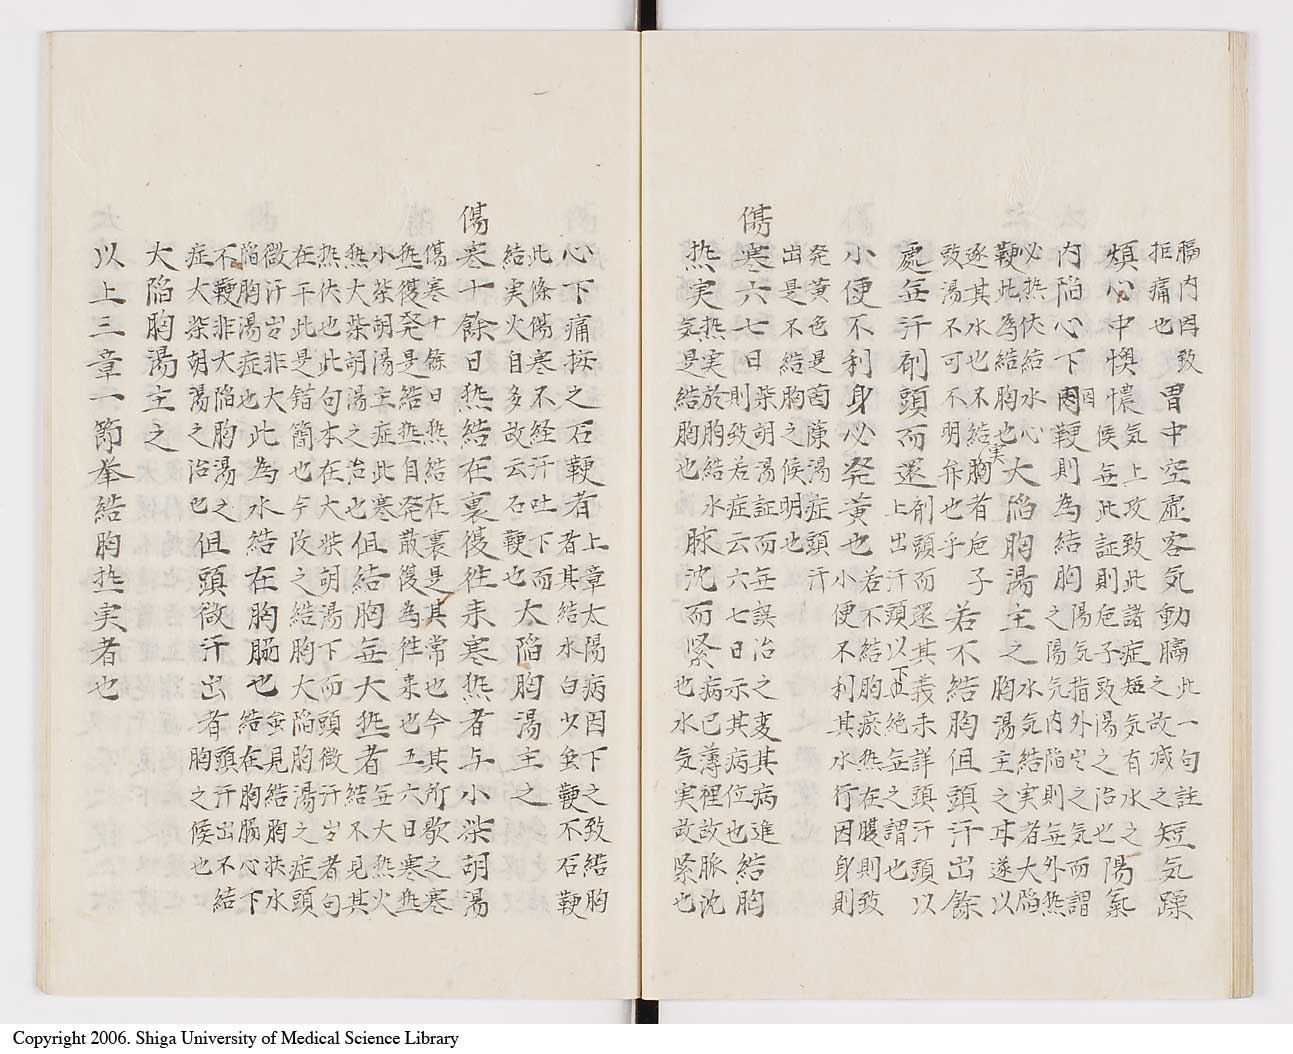 膈内因致
拒痛也
胃中空虚客気動膈
此一句註
之故减之
短気躁
煩心中懊憹
気上攻致此諸症短気有水之
因候毎此証則危子致湯之治也
陽氣
内陥心下因鞕則為結胸
陽気指外也之気而謂
之陽気内陥則無外热
必热伏結水心
鞕此為結胸也
大陥胸湯主之
水気結実者大陥
胸湯主之耳遂以
逐其水也不結実胸者危子
致湯不可不明弁也乎
若不結胸但頭汗出餘
處無汗剤頸而還
剤頸而還其義未詳頭汗頭以
上出汗頭以下並絶無之謂也
小便不利身必発黄也
若不結胸瘀热在膜則致
小便不利其水行因身則
発黄色是茵蔯湯症頭汗
出是不結胸之候明也
傷寒六七日
柴胡湯証而無誤治之変其病進
則致若症云六七日示其病位也
結胸
热実
热実於胸結水
気是結胸也
脉沈而緊
病已薄裡故脈沈
也水気実故緊也
心下痛按之石鞕者
上章太陽病因下之致結胸
者其結水白少虽鞕不石鞕
此條傷寒不経汗吐下而
結実火自多故云石鞕也
大陥胸湯主之
傷寒十餘日热結在裏復往来寒热者与小柴胡湯
傷寒十餘日热結在裏是其常也今其所歇之寒
热復発是結热自発散復為往来也五六日寒热
小柴胡湯主症此寒
热大柴胡湯之治也
但結胸無大热者
無大热火
結不見其
热伏也此句本在大柴胡湯下而頭微汗出者句
在于此是錯簡也今改之結胸大陥胸湯之症頭
微汗出非大
陥胸湯症也
此為水結在胸脇也
虽見結胸状水
結在胸膈心下
不鞕非大陥胸湯之
症大柴胡湯之治也
但頭微汗出者
頭汗出不結
胸之候也
大陥胸湯主之
以上三章一節挙結胸热実者也
Copyright 2006. Shiga University of Medical Science Library